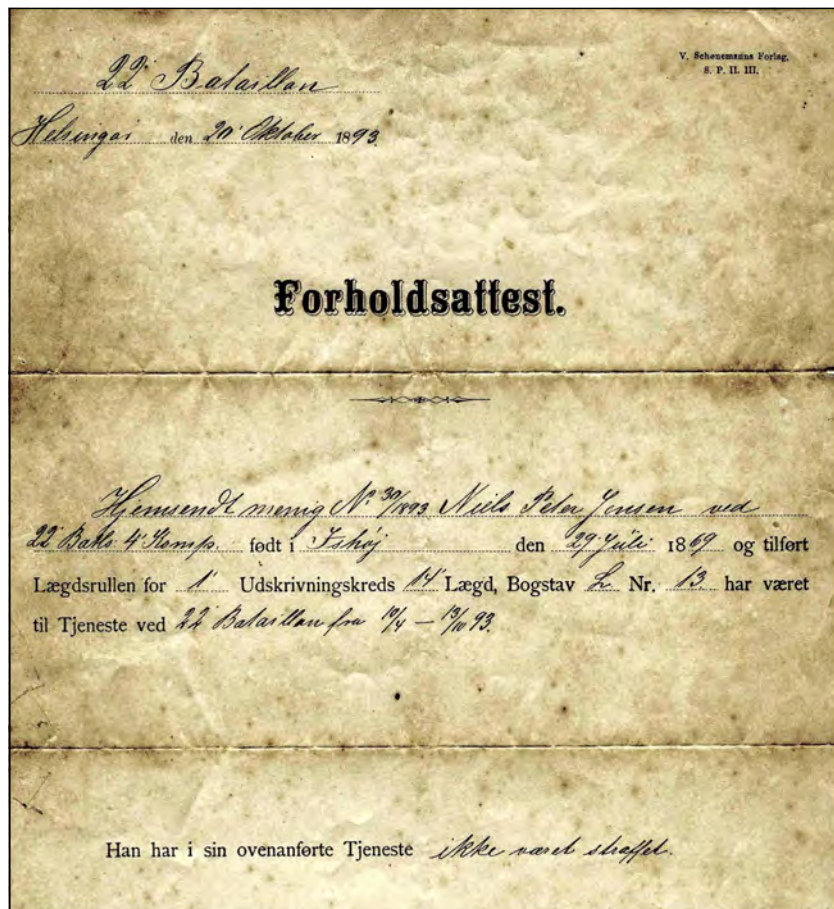 22' Bataillon
V. Schønemanns Forlag,
S. P. II. III.
Helsingør den 20' Oktober 1893.
Forholdsattest.
Hjemsendt menig No. 30/1893 Niels Peter Jensen ved
22' Batls 4' Komp. født i Ishøj den 29' Juli 1869 og tilført
Lægdsrullen for 1' Udskrivningskreds 14' Lægd, Bogstav L Nr. 13 har været
til Tjeneste ved 22' Bataillon fra 10/4 – 13/10 93.
Han har i sin ovenanførte Tjeneste ikke været straffet.